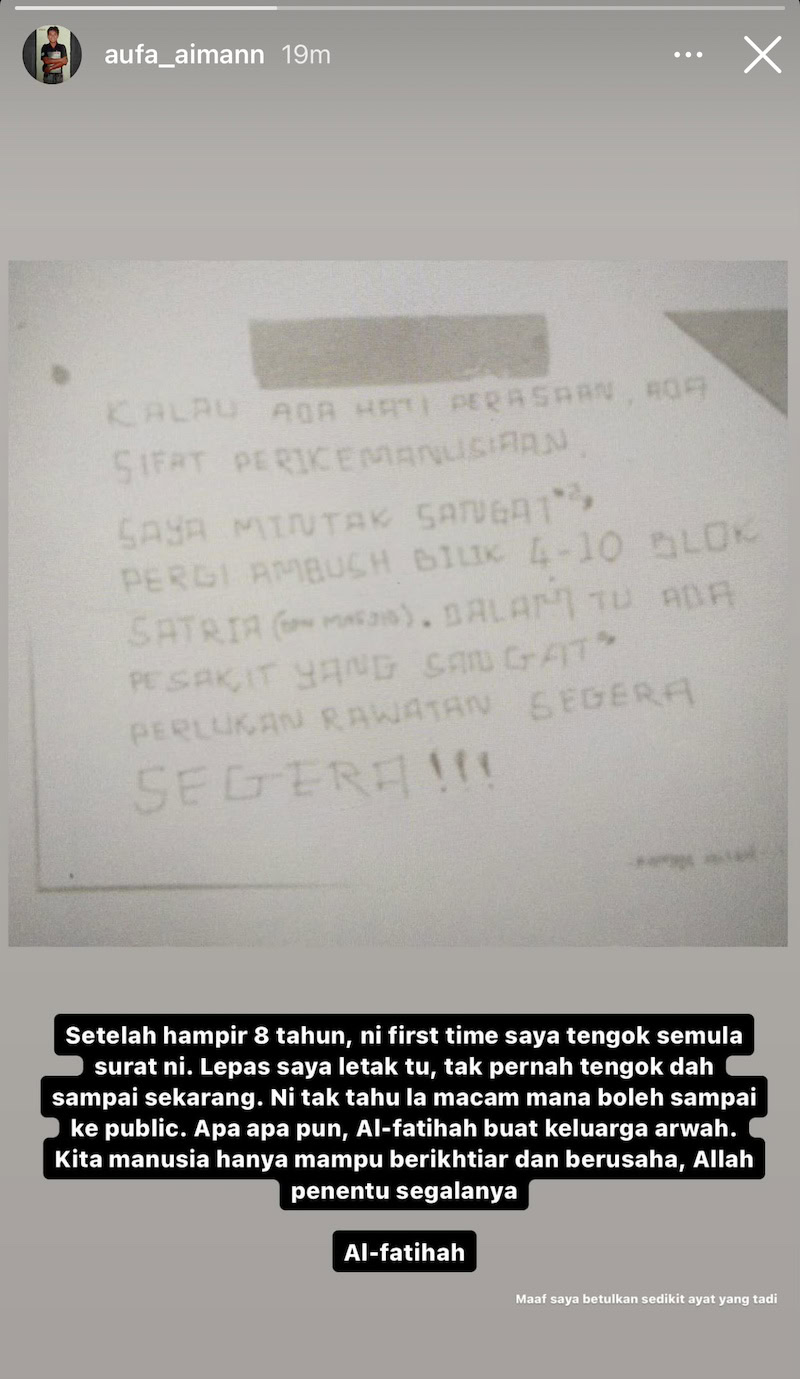 aufa_aimann 19m
KALAU ADA HATI PERASAAN, ADA
SIFAT PERIKEMANUSIAAN.
SAYA MINTAK SANGAT"2,
PERGI AMBUSH BILIK 4-10 BLOK
SATRIA (DPN MASJID). DALAM TU ADA
PESAKIT YANG SANGAT2
PERLUKAN RAWATAN SEGERA
SEGERA!!!
Setelah hampir 8 tahun, ni first time saya tengok semula
surat ni. Lepas saya letak tu, tak pernah tengok dah
sampai sekarang. Ni tak tahu la macam mana boleh sampai
ke public. Apa apa pun, Al-fatihah buat keluarga arwah.
Kita manusia hanya mampu berikhtiar dan berusaha, Allah
penentu segalanya
Al-fatihah
Maaf saya betulkan sedikit ayat yang tadi